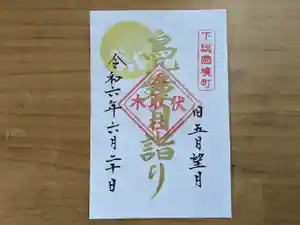 下総國境町
旧五月望月
月詣り
伏木
令和六年六月二十日